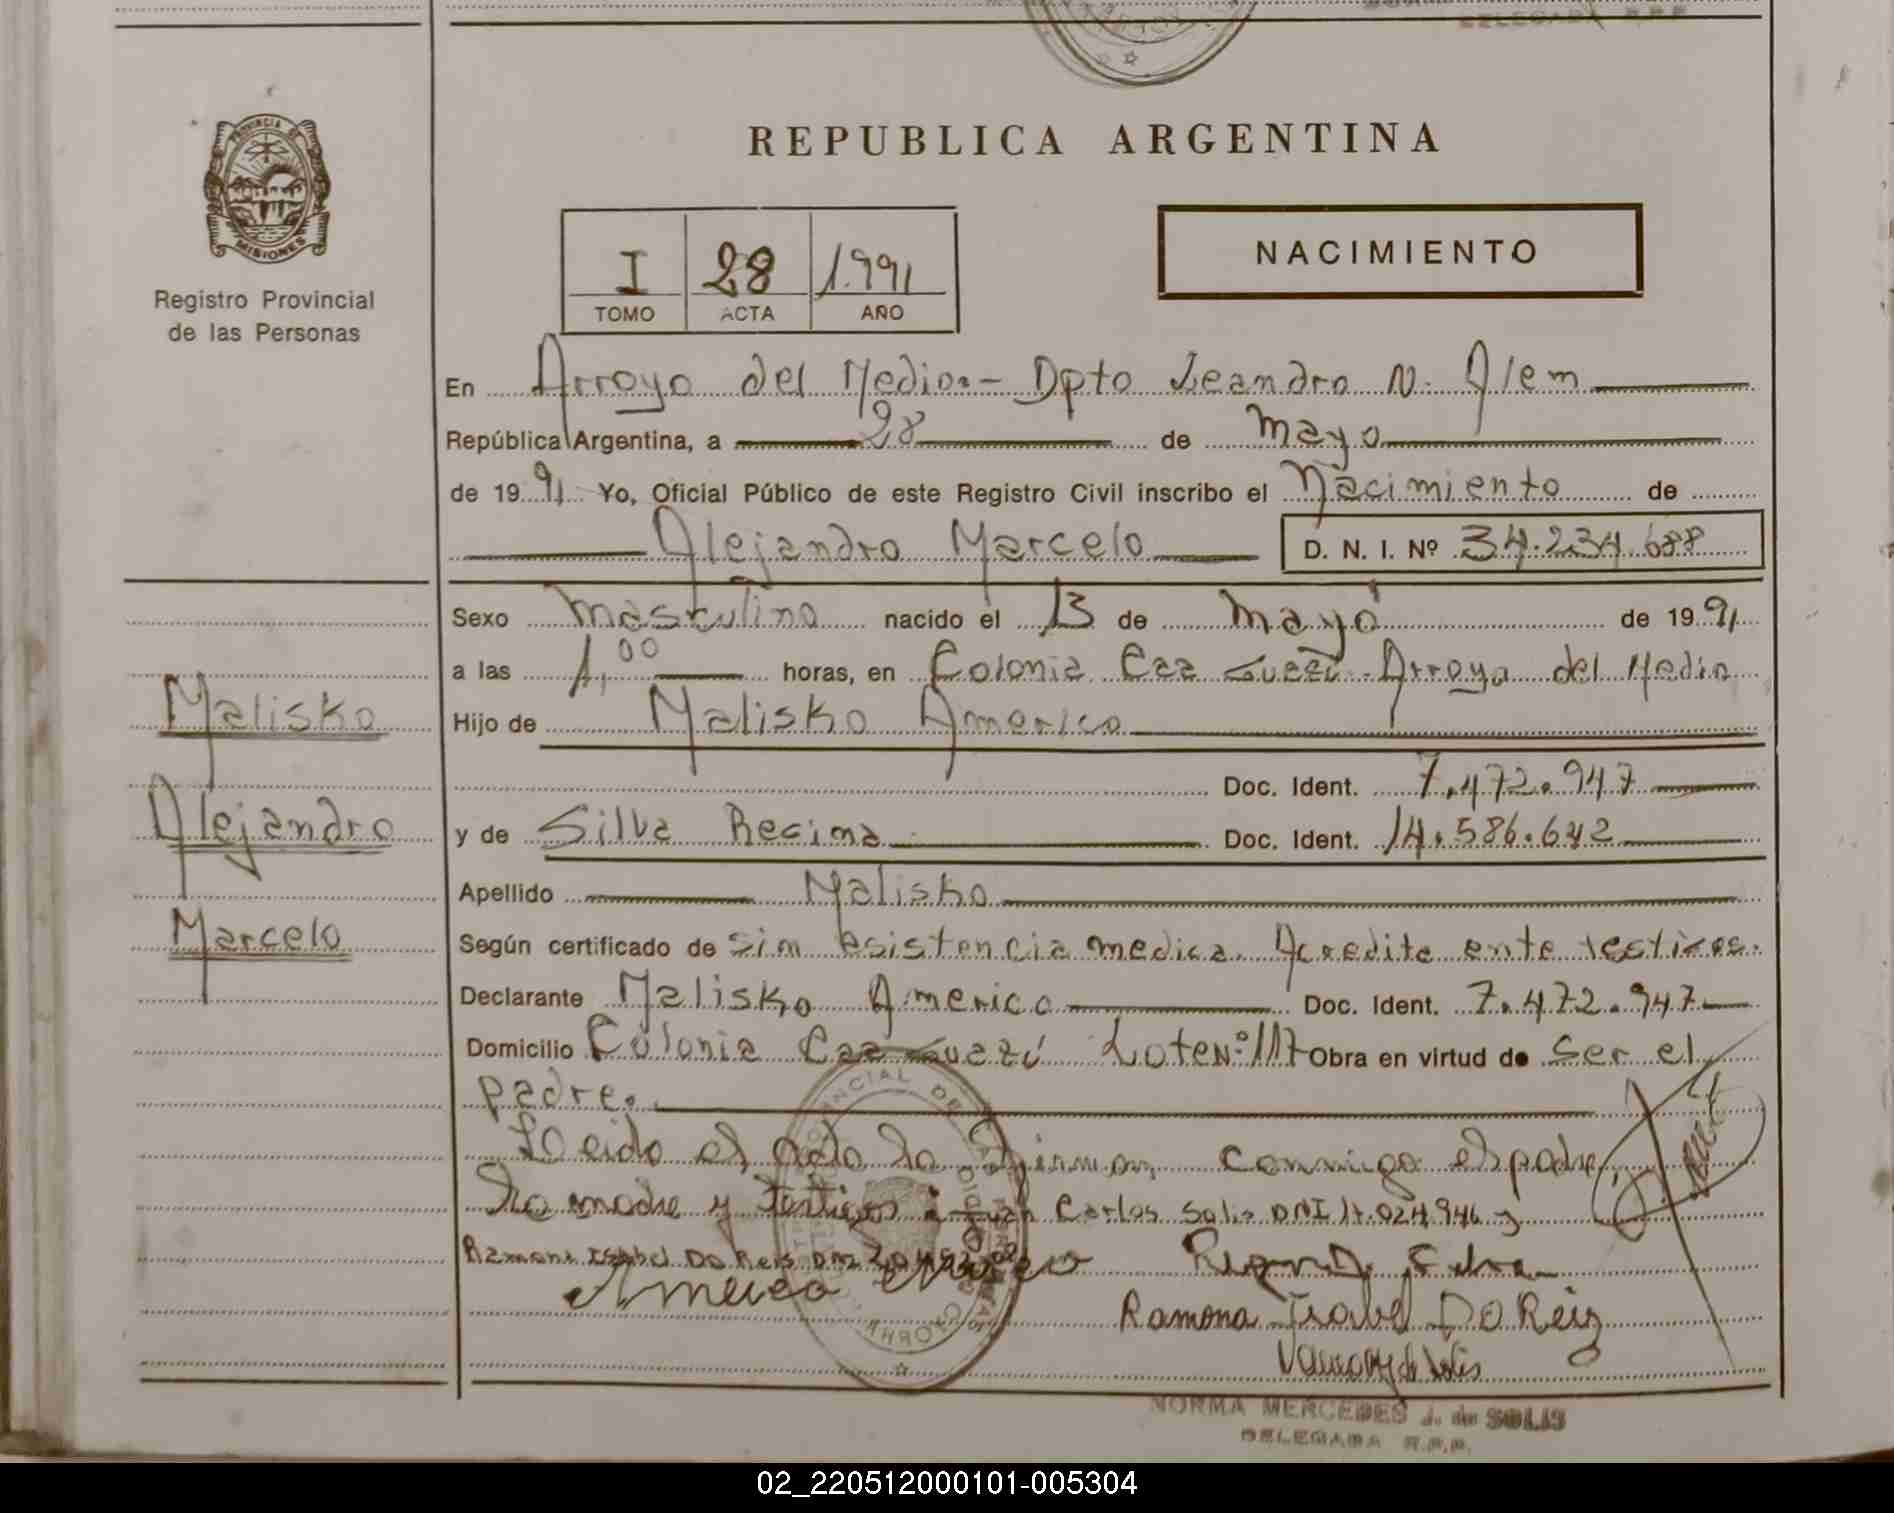 DELEGADA R.P.P.
PROVINCIA DE
MISIONES
Registro Provincial
de las Personas
REPUBLICA ARGENTINA
I 28 1.991
TOMO ACTA AÑO
NACIMIENTO
En Arroyo del Medio.- Dpto Leandro N. Alem
República Argentina, a 28 de Mayo
de 1991 Yo, Oficial Público de este Registro Civil inscribo el Nacimiento de
Alejandro Marcelo D. N. I. Nº 34.234.688
Sexo Masculino nacido el 13 de Mayo de 1991
a las 1,00 horas, en Colonia Caa Guazú - Arroyo del Medio
Hijo de Malisko Americo
Doc. Ident. 7.472.947
y de Silva Regima Doc. Ident. 14.586.642
Apellido Malisko
Según certificado de Sim asistencia medica. Acredita ante testigos.
Declarante Malisko Americo Doc. Ident. 7.472.947
Domicilio Colonia Caa Guazú Lote Nº 117 Obra en virtud de Ser el
padre.
Leido el acta la firman conmigo el padre
la madre y testigos Juan Carlos Solis DNI 17.024.946 y
Ramona Isabel Do Reis DNI
Ramona Isabel Do Reiz
Malisko
Alejandro
Marcelo
NORMA MERCEDES J. de SOLIS
DELEGADA R.P.P.
02_220512000101-005304